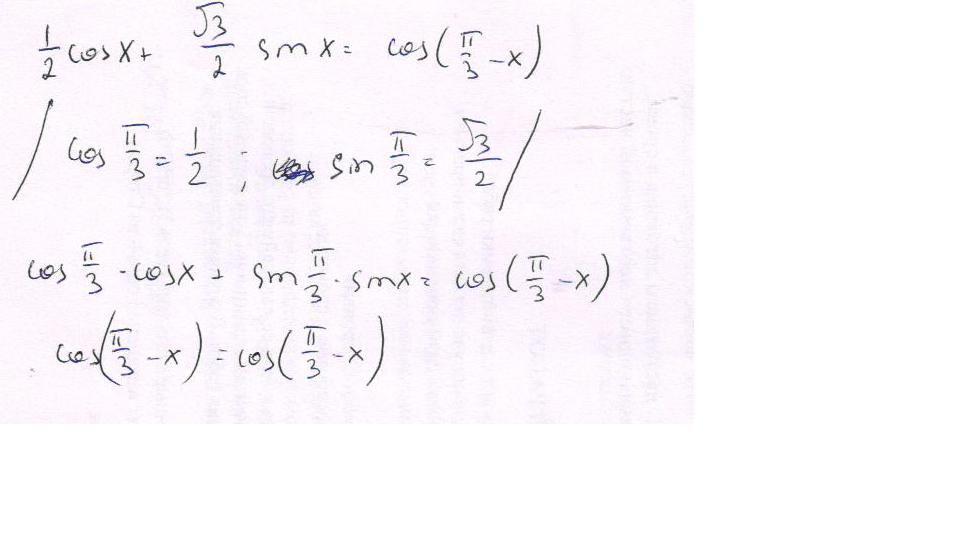 1/2 cos x + √3/2 sin x = cos(π/3 - x)
/ cos π/3 = 1/2 ; sin π/3 = √3/2 /
cos π/3 · cos x + sin π/3 · sin x = cos(π/3 - x)
cos(π/3 - x) = cos(π/3 - x)